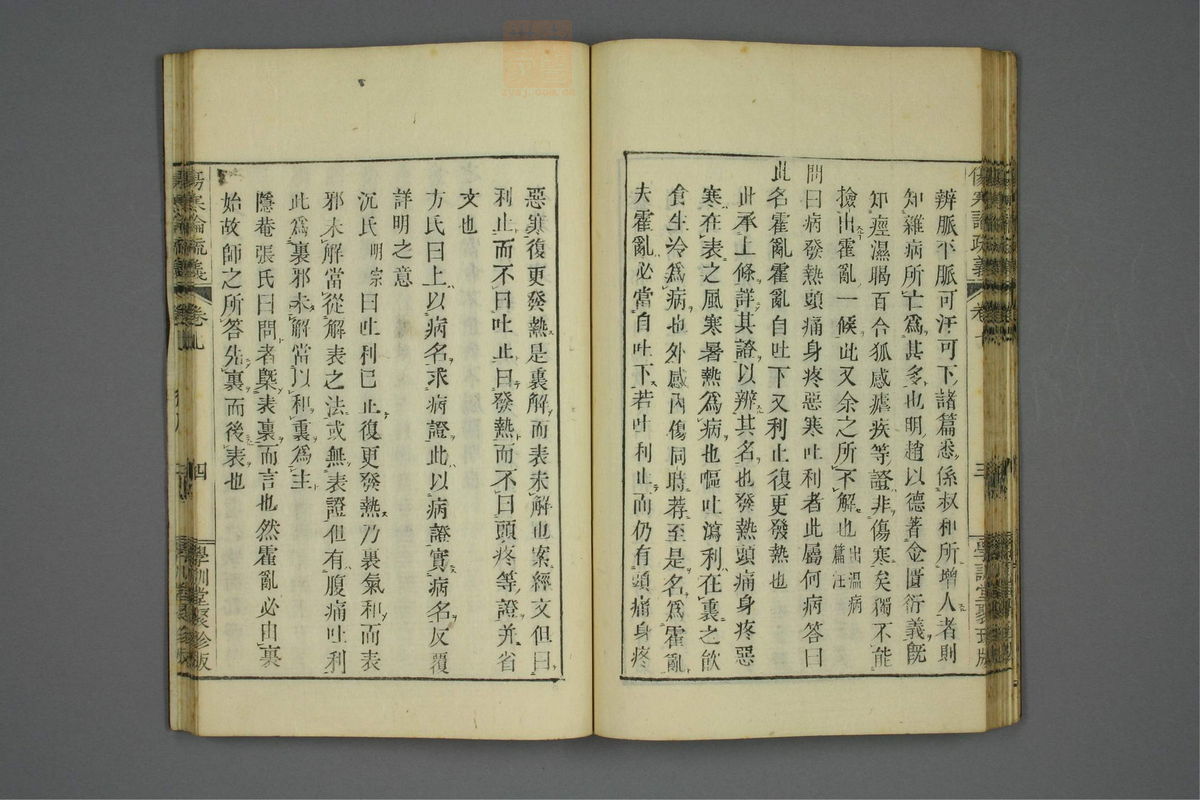 辨脈平脈可汗可下諸篇悉係叔和所增人者則
知雜病所亡爲其多也明趙以德著金匱衍義既
知痙濕暍百合狐惑瘧疾等證非傷寒矣獨不能
撿出霍亂一候此又余之所不解也出溫病篇注
問曰病發熱頭痛身疼惡寒吐利者此屬何病答曰
此名霍亂霍亂自吐下又利止復更發熱也
此承上條詳其證以辨其名也發熱頭痛身疼惡
寒在表之風寒暑熱爲病也嘔吐瀉利在裏之飮
食生冷爲病也外感內傷同時荐至是名爲霍亂
夫霍亂必當自吐下若吐利止而仍有頭痛身疼
惡寒復更發熱是裏解而表未解也案經文但曰
利止而不曰吐止曰發熱而不曰頭疼等證并省
文也
方氏曰上以病名求病證此以病證實病名反覆
詳明之意
沉氏明宗曰吐利已止復更發熱乃裏氣和而表
邪未解當從解表之法或無表證但有腹痛吐利
此爲裏邪未解當以和裏爲主
隱菴張氏曰問者槩表裏而言也然霍亂必由裏
始故師之所答先裏而後表也
傷寒論疏義
卷七
三
學訓堂聚珍版
傷寒論疏義
卷七
四
學訓堂聚珍版